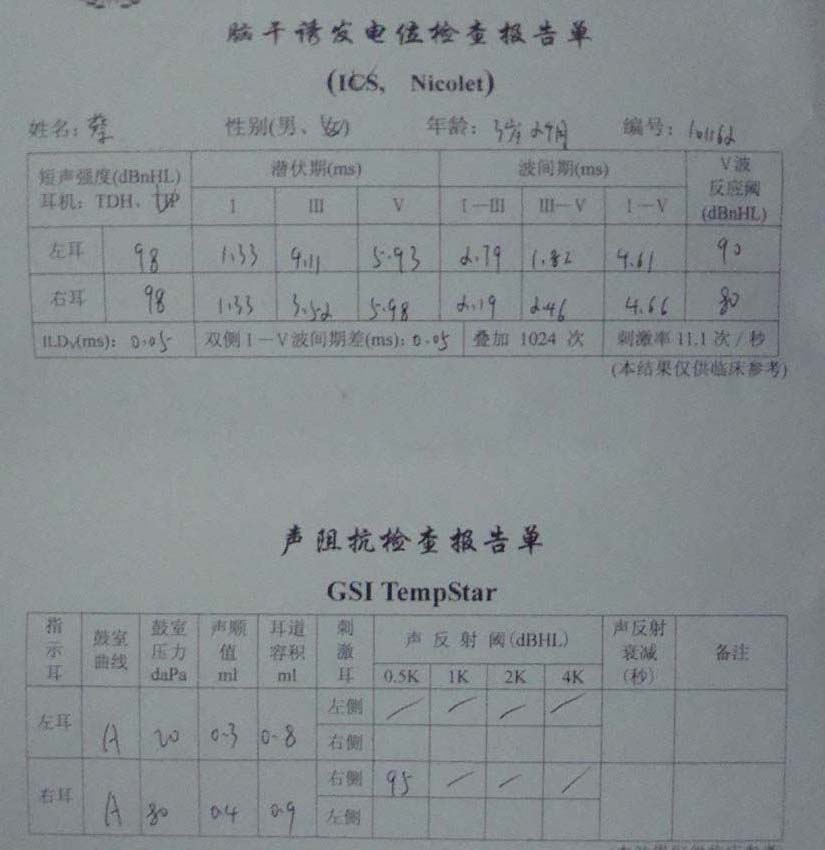 脑干诱发电位检查报告单
(ICS, Nicolet)
姓名: 性别(男、女) 年龄: 3岁2个月 编号: 101162
短声强度(dBnHL) 潜伏期(ms) 波间期(ms) V波
耳机: TDH、UP I III V I—III III—V I—V 反应阈
(dBnHL)
左耳 98 1.33 4.11 5.93 2.79 1.82 4.61 90
右耳 98 1.33 3.52 5.98 2.19 2.46 4.66 80
ILDV(ms): 0.05 双侧I—V波间期差(ms): 0.05 叠加 1024 次 刺激率11.1次/秒
(本结果仅供临床参考)
声阻抗检查报告单
GSI TempStar
指示耳 鼓室曲线 鼓室压力daPa 声顺值ml 耳道容积ml 刺激耳 声反射阈(dBHL) 声反射衰减(秒) 备注
0.5K 1K 2K 4K
左耳 A 20 0.3 0.8 左侧 / / / /
右侧
右耳 A 80 0.4 0.9 右侧 95 / / /
左侧